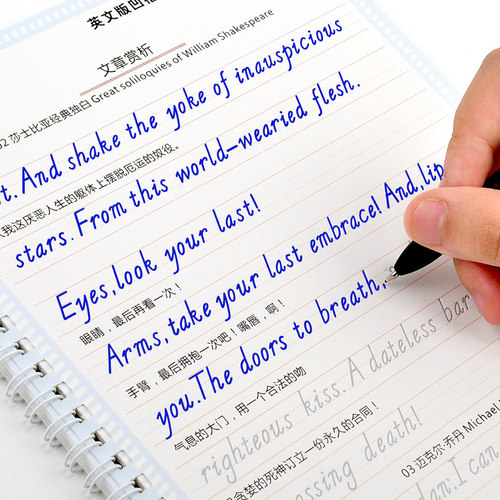 英文版凹槽
文章赏析
02 莎士比亚经典独白 Great soliloquies of William Shakespeare
And shake the yoke of inauspicious
我这厌恶人生的躯体上摆脱厄运的奴役。
stars. From this world-wearied flesh.
Eyes, look your last!
眼睛，最后再看一次！
Arms, take your last embrace! And, lip
手臂，最后拥抱一次吧！嘴唇，啊！
you. The doors to breath,
气息的大门，用一个合法的吻
righteous kiss. A dateless bar
贪婪的死神订立一份永久的合同！
death!
03 迈克尔·乔丹 Michael
I can